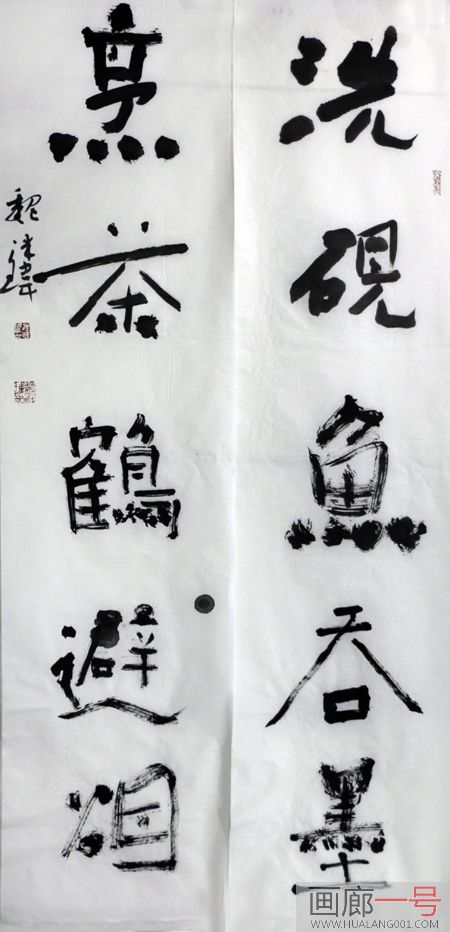 洗硯魚吞墨
烹茶鶴避烟
魏
画廊一号
WWW.HUALANG001.COM